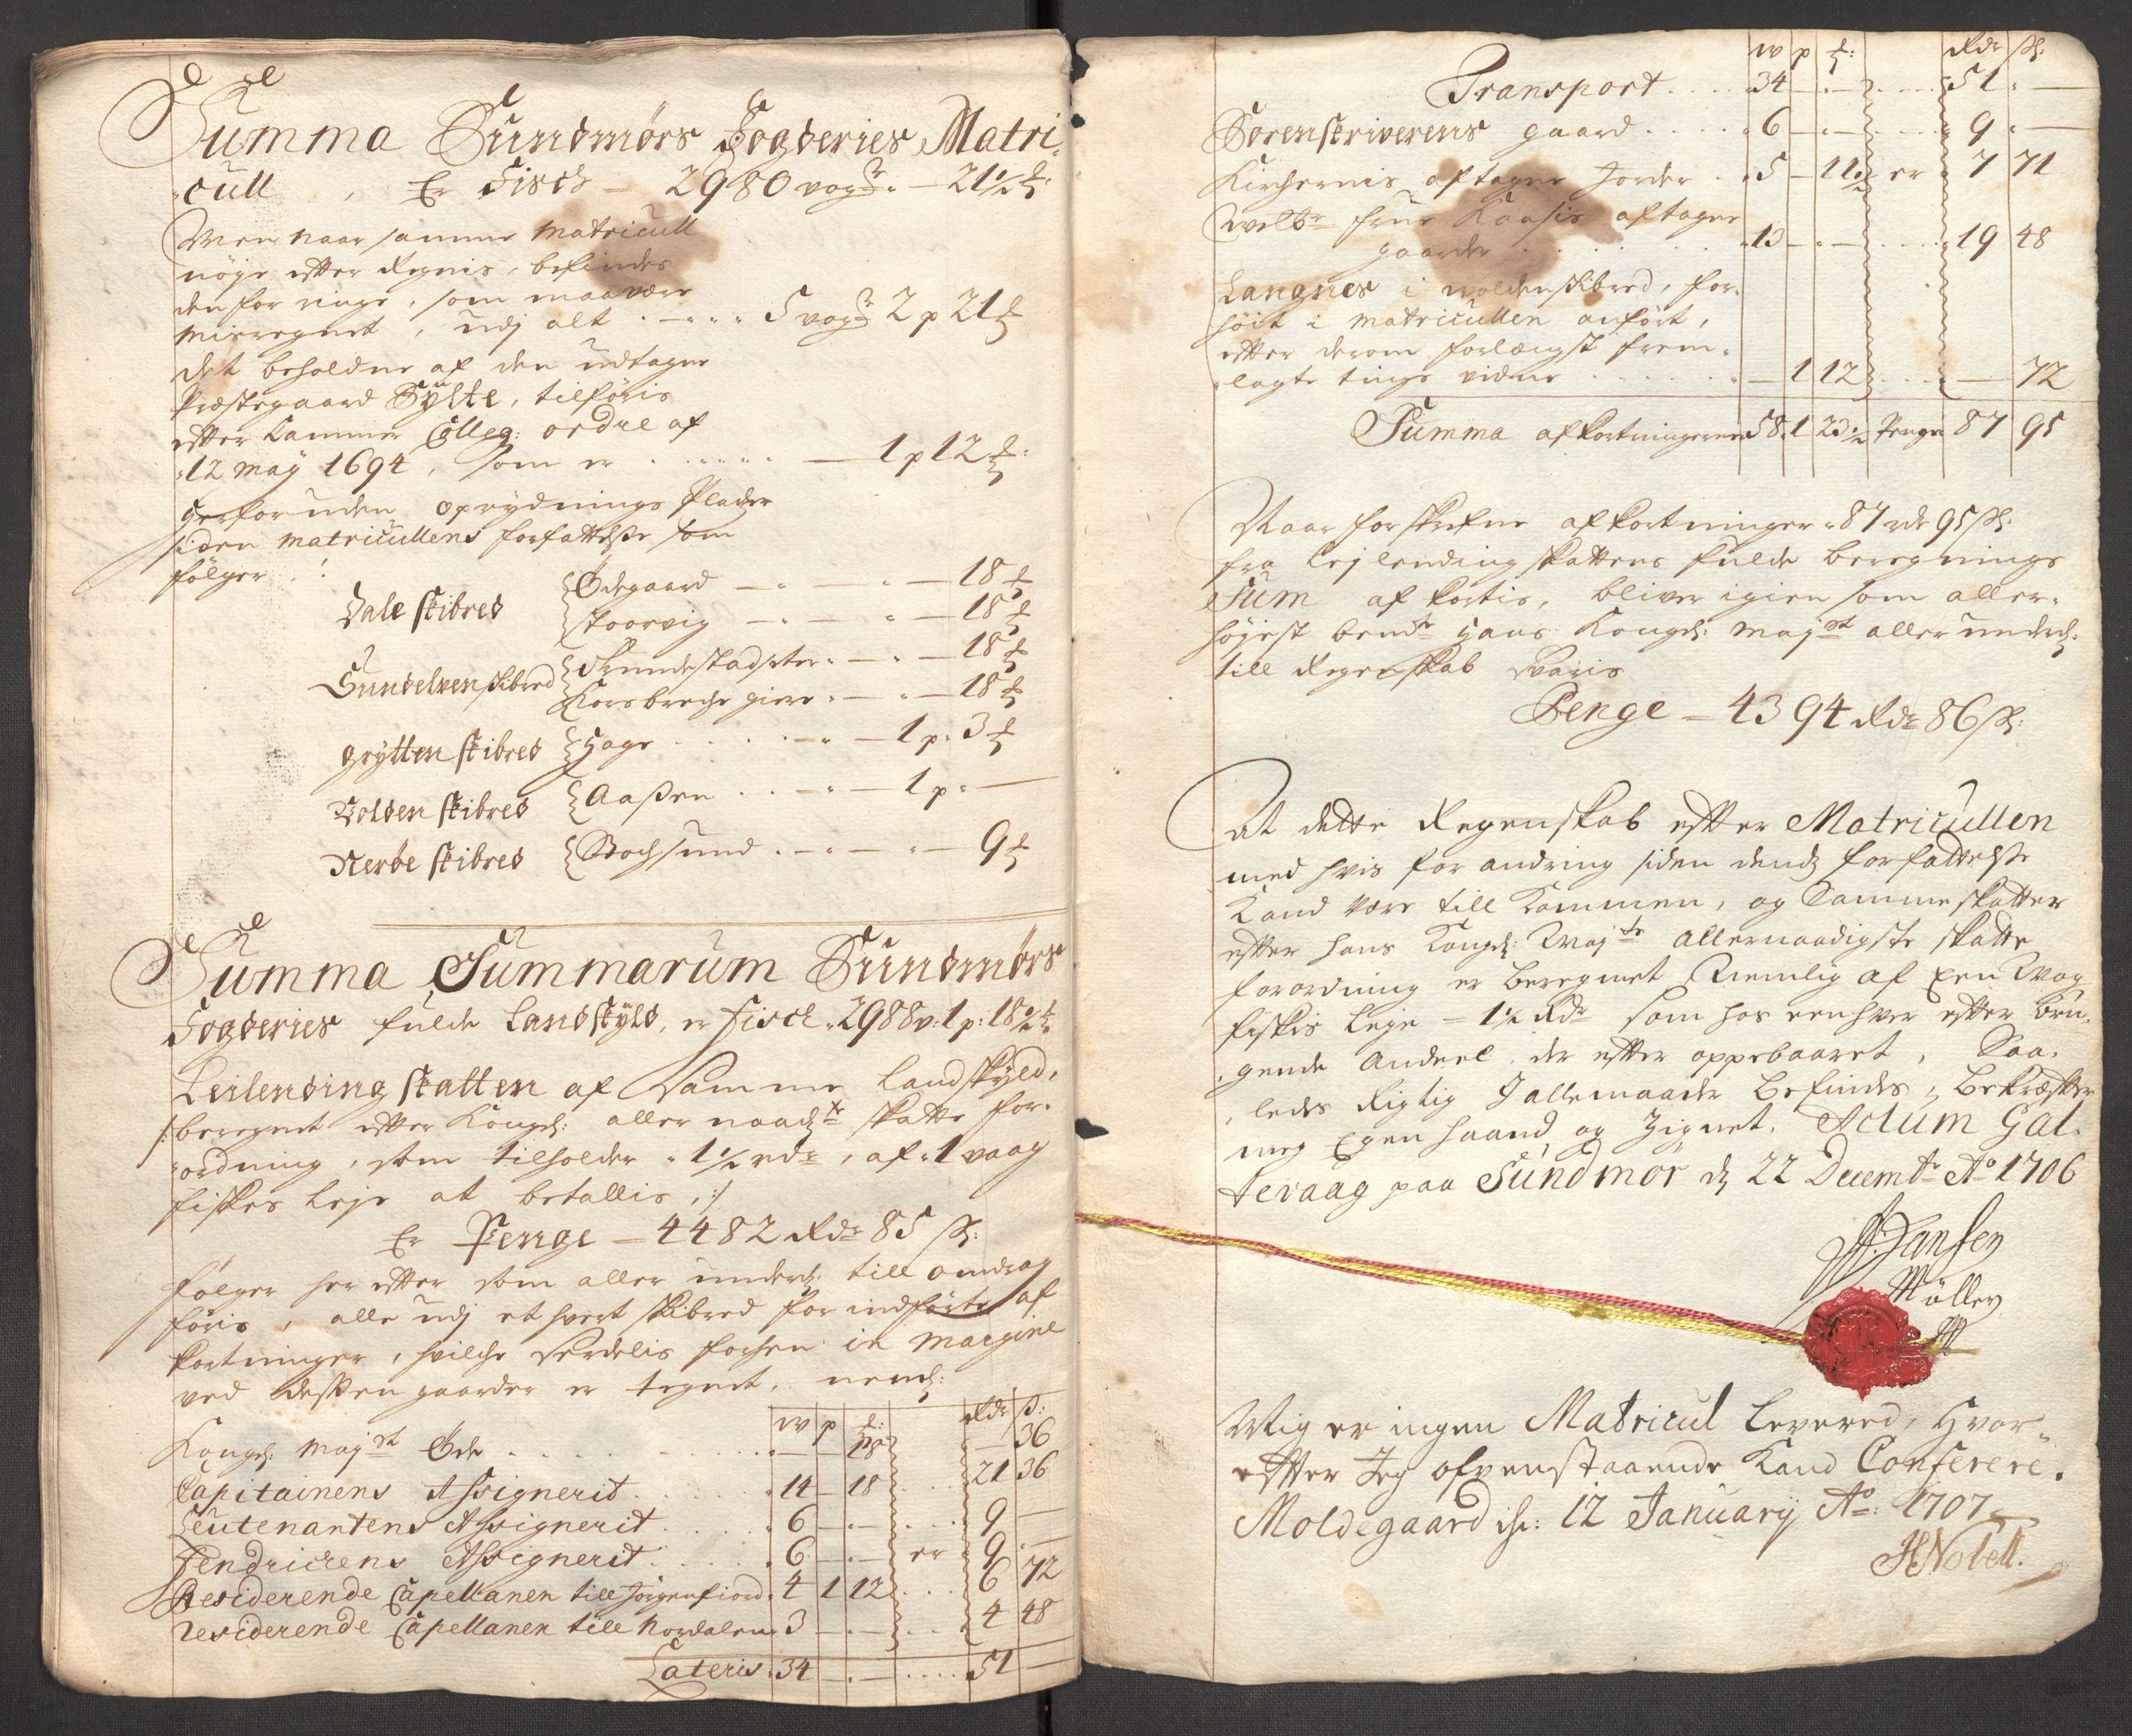 Summa Sundmørs Fogderies Matri-
cull, Er Fisch - 2980 vogr - 21½ ℔:
Men naar samme Matricull
nøye efter Regnis, befindes
den for ringe, som maa være
misregnet, udj alt - - 5 vogr 2 p 21 ℔
Det beholdne af den udtagne
Præstegaard Sylte, tilføris
efter Kammer Colleg: ordre af
12 Maÿ 1694, som er - - 1 p 12 ℔:
Herforuden oprÿdnings Pladzer
siden matricullens forfattelsse som
følger:
Dale skibred { Ødegaard - - 18 ℔
Skoorvig - - 18 ℔
Sundelven skibred { - - 18 ℔
Korsbreche giere - - 18 ℔
Grÿtten skibred { Hage - - 1 p 3 ℔
Volden skibred { Aaßen - - 1 p -
Nerbe skibred { Bochsund - - 9 ℔
Summa Summarum Sundmørs
Fogderies fulde Landskÿld, er Fisch 2988 v: 1 p: 18½ ℔
Leilending skatten af samme Landskÿld,
/: beregnet efter Kongl: allernaadste skatte for-
ordning, som tilholder 1½ rdr, af 1 vaag
fiskes leje at betallis, :/
Er Penge - 4482 Rdr 85 ß:
Følger her efter som aller underd: till omdrag
føris, alle udj et hvert skibred for indførte af
kortninger, hvilche serdelis forhen in margine
ved desßen gaarder er tegnet, neml:
w p ℔: Rdr ß:
Kongl: Majst Øde - - 18 - 36
Capitainens Assignerit 14 - 18 21 36
Leutenantens Assignerit 6 - - 9 -
Fendrichens Assignerit 6 - - er 9 -
Residerende Capellanen till Jørgenfiord 4 1 12 6 72
Residerende Capellanen till Nordalen 3 - - 4 48
Lateris 34 - - 51 -
w p ℔: Rdr ß:
Transport 34 - - 51 -
Sorenskriverens gaard 6 - - 9 -
Kirchernis aftagne Jorder 5 - 11½ er 7 71
Welbr Frue Kaasis aftagne
gaarder 13 - - 19 48
Langnes i woldenskibred, for-
høit i matricullen anført,
efter derom forlængst frem-
lagte tings vidne - 1 12 - 72
Summa afkortningerne 58 1 23½ Penge 87 95
Naar forskrefne afkortninger 87 rdr 95 ß:
fra leylending skattens fulde beregnings
Sum afkortis, bliver igien som aller-
højest bemte Hans Kongl: Majst aller underd:
till Regenskab svaris
Penge - 4394 Rdr 86 ß:
At dette Regenskab efter Matricullen
med hvis forandring siden dends forfattelsse
Kand være till Kommen, og Samme skatter
efter hans Kongl: Mayts allernaadigste skatte
forordning er beregnet Nemlig af Een Wog
fiskis leje = 1½ Rdr som hos eenhver efter bru-
gende Andeel der efter oppebaaret, Saa-
ledes Rigtig J allemaader befindes, bekræfter
meg Egen haand og Zignet. Actum Gal-
tevaag paa Sündmör d 22 Decembr Ao 1706
Hansen
Möller
Mig er ingen Matricul levered, Hvor-
efter Jeg ofvenstaaende Kand Conferere.
Moldegaard d: 12 Januarij Ao: 1707
HNobell.